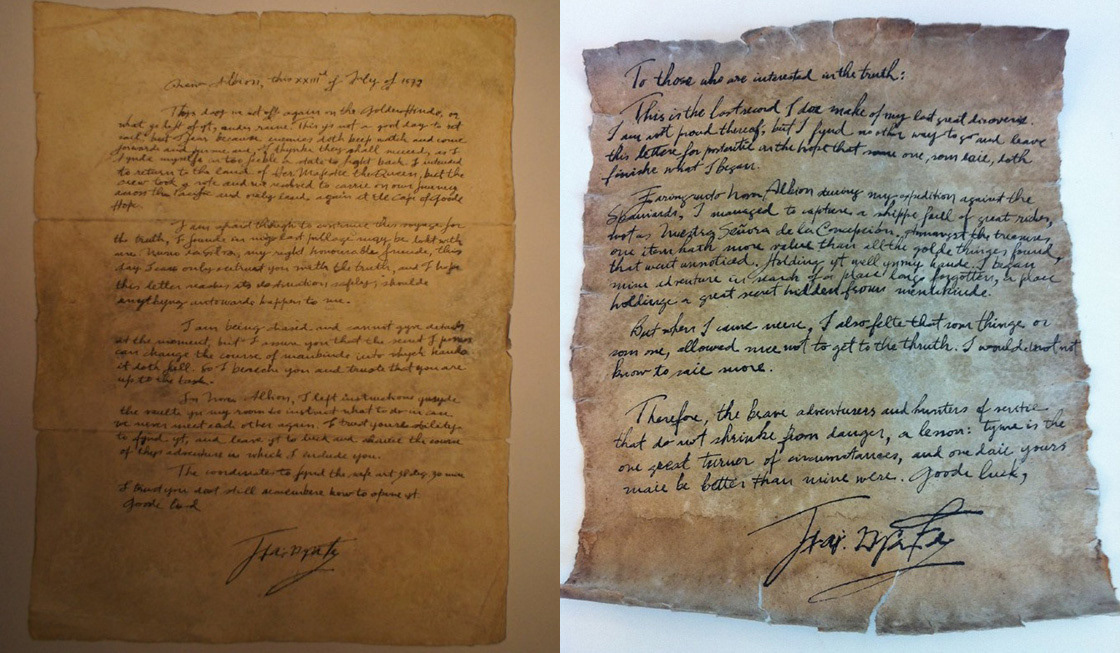 Nova Albion, this XXIIIrd of July of 1579
This day we set off again on the Golden Hinde, or
what is left of yt, under raine. This ys not a good day to set
sail, but I fear because enemies doth keep watch and come
forwards and pursue me, I thynke they shall succeed, as I
fynde myselfe in too feeble a state to fight back. I intended
to return to the land of Her Majestie the Queen, but the
crew took a vote and we resolved to carrie on our journey
across the Pacific and only land again at the Cape of Goode
Hope.
I am afraid though to continue this voyage for
the truth, I founde in my last pillage may be lost with
me. Nuno da Silva, my right honourable friende, this
day I can only entrust you with the truth, and I hope
this letter reaches its destination safely, should
anythyng untowards happen to me.
I am being chased and cannot gyve details
at the moment, but I assure you that the secret I possess
can change the course of mankinde into whych hands
it doth fall. So I beseech you and truste that you are
up to the task.
In Nova Albion, I left instructions ynsyde
the vaulte yn my room to instruct what to do in case
we never meet each other again. I trust youre ability
to fynd yt, and leave yt to luck and chance the course
of thys adventure in which I include you.
The coordinates to fynd the safe are
I trust you dost still remember how to open yt.
Goode Luck
To those who are interested in the truth:
This is the last record I doe make of my last great discoverie.
I am not proud thereof, but I fynd no other way to go and leave
this lettere for posteritie in the hope that some one, som daie, doth
finishe what I began.
Faring unto Nova Albion during my expedition against the
Spaniards, I managed to capture a shippe full of great riches,
not as Nuestra Señora de la Concepción. Amongst the treasures,
one item hath more value than all the golde thinges found,
that went unnoticed. Holding yt well yn my hande, I began
mine adventure in search of a place long forgotten, a place
holdinge a great secret hidden from menkinde.
But when I came neere, I also felte that som thinge or
som one, allowed mee not to get to the thruth. I would not
know to saie more.
Therefore, the brave adventurers and hunters of
that do not shrinke from danger, a lesson: tyme is the
one great turner of circumstances, and one daie yours
maie be better than mine were. Goode luck,